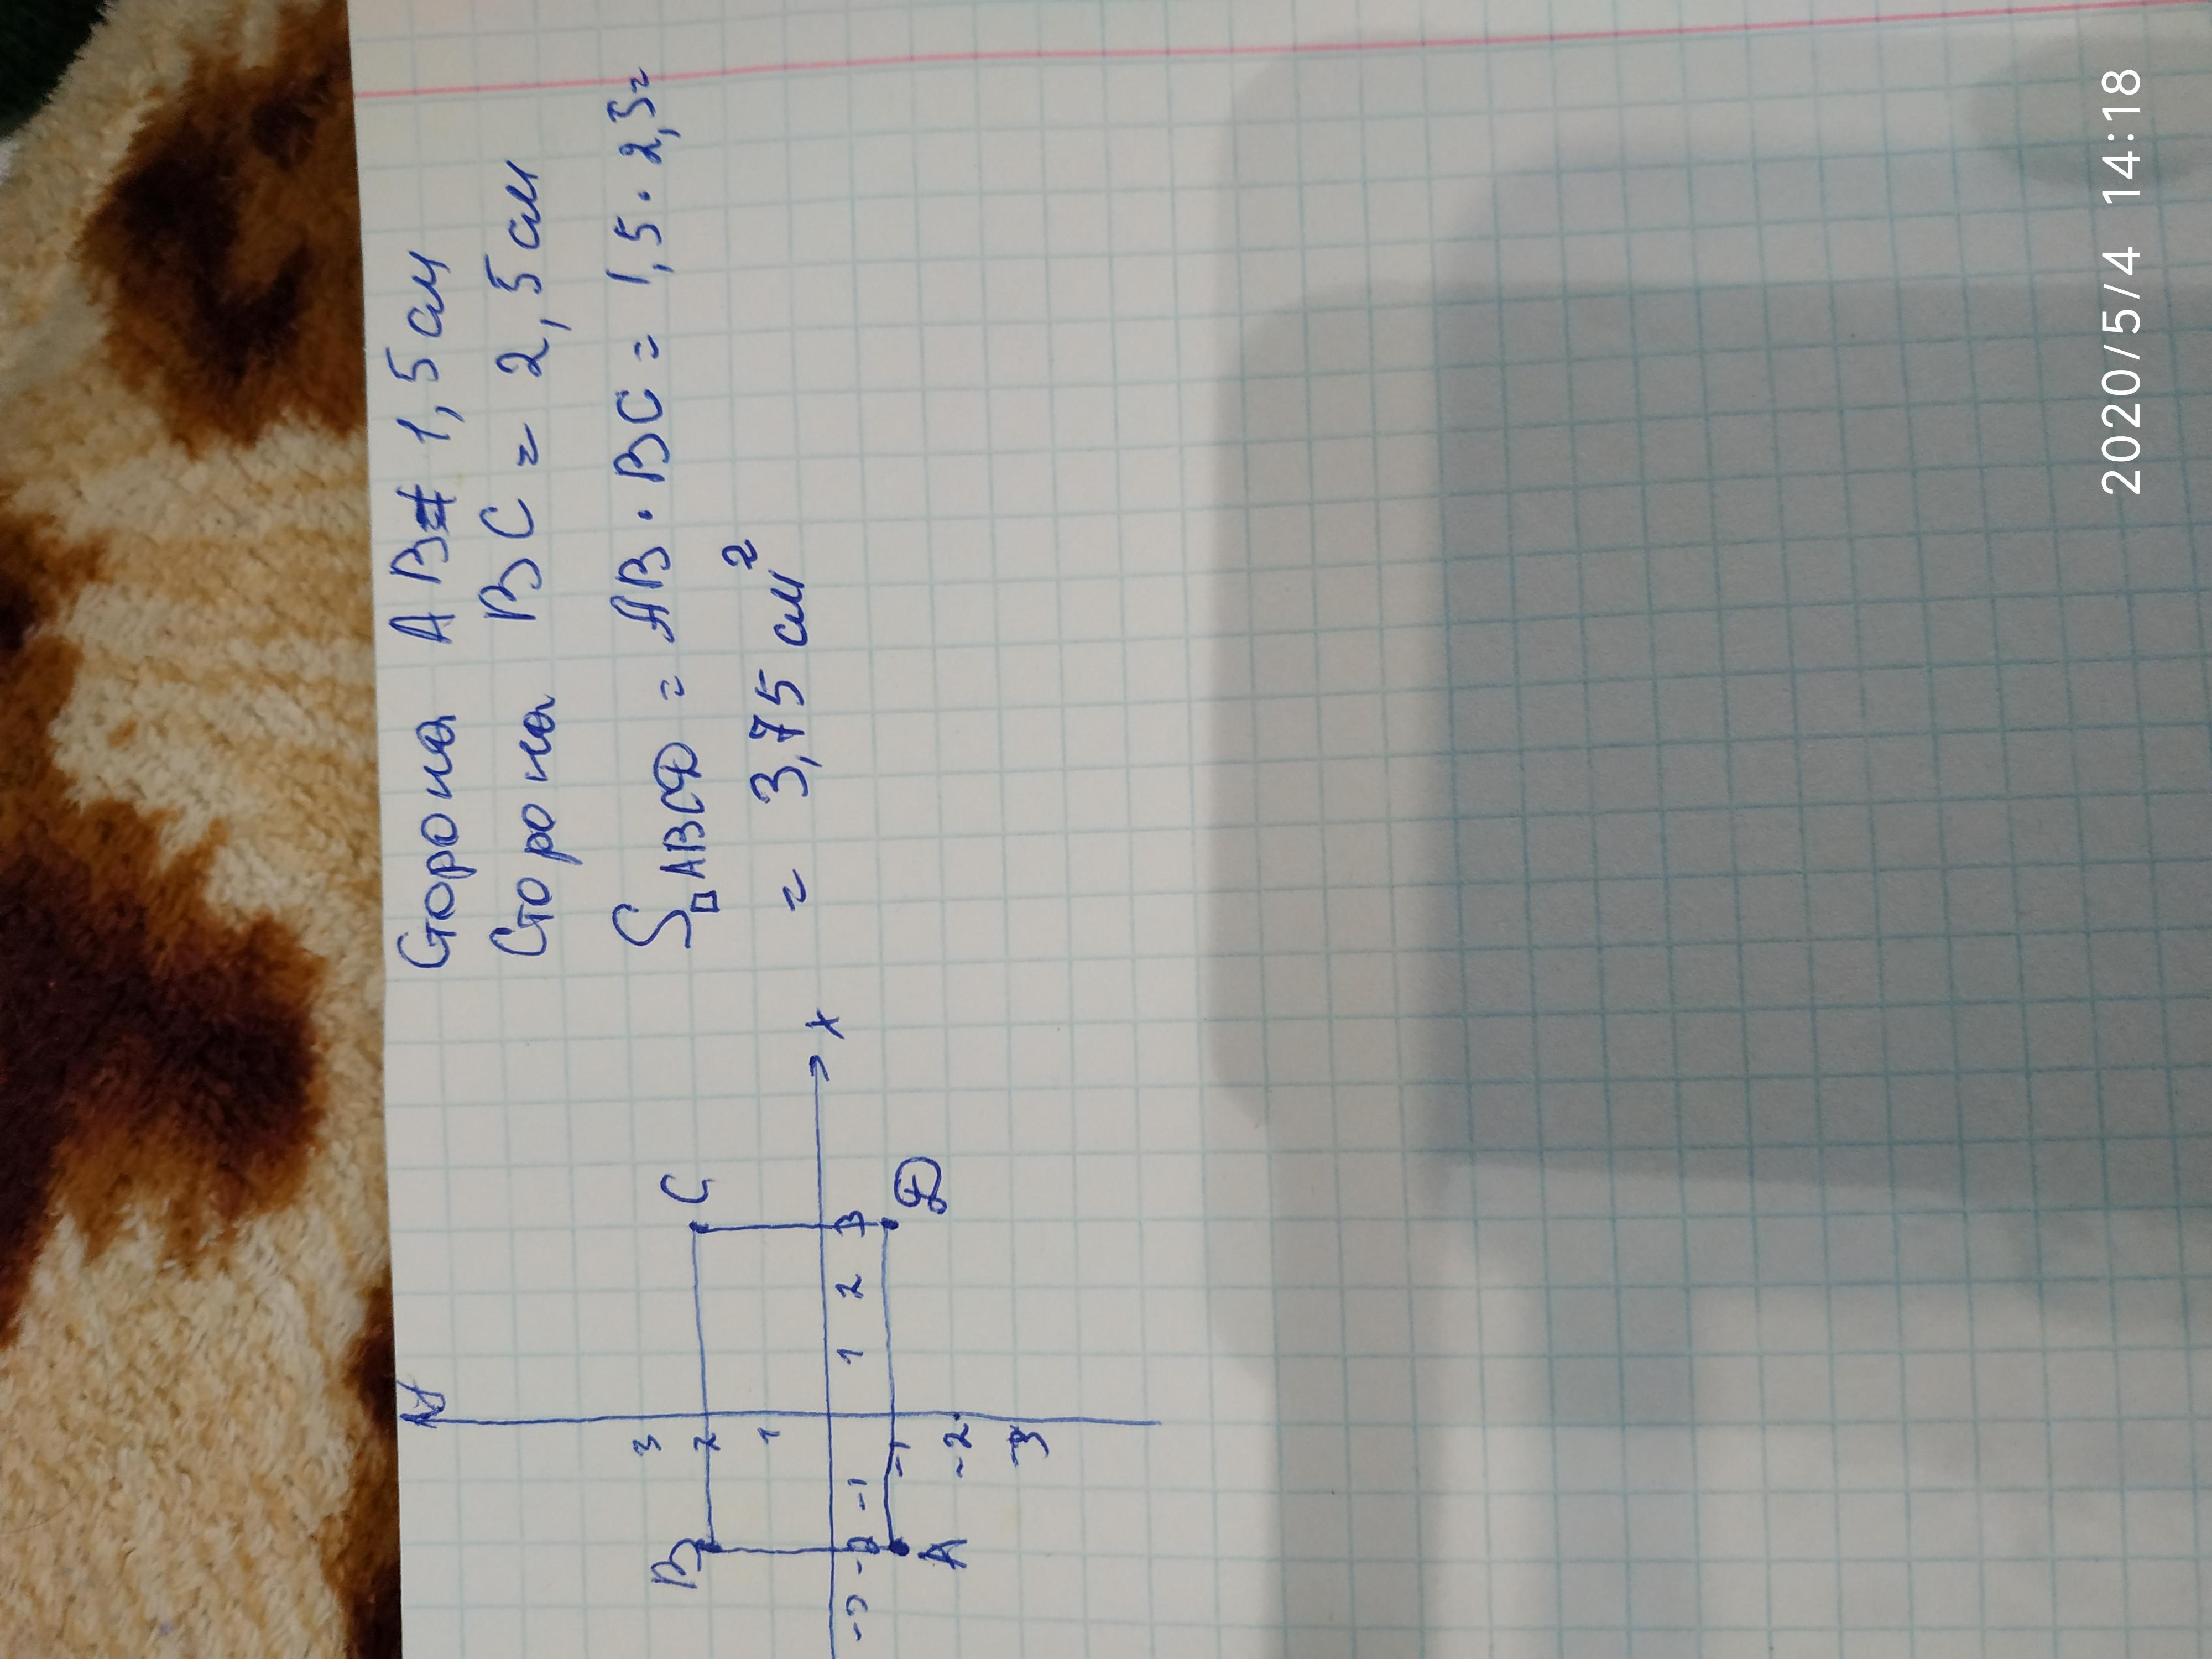 Сторона AB = 1,5 см
Сторона BC = 2,5 см
S□ABCD = AB · BC = 1,5 · 2,5 =
= 3,75 см²
3
B 2 C
1
x
-3 -2 -1 1 2 3
-1
A D
-2
-3
2020/5/4 14:18